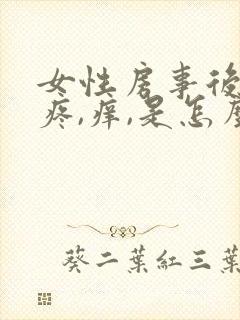 女性房事後
疼,痒,是怎
葵二葉紅三葉